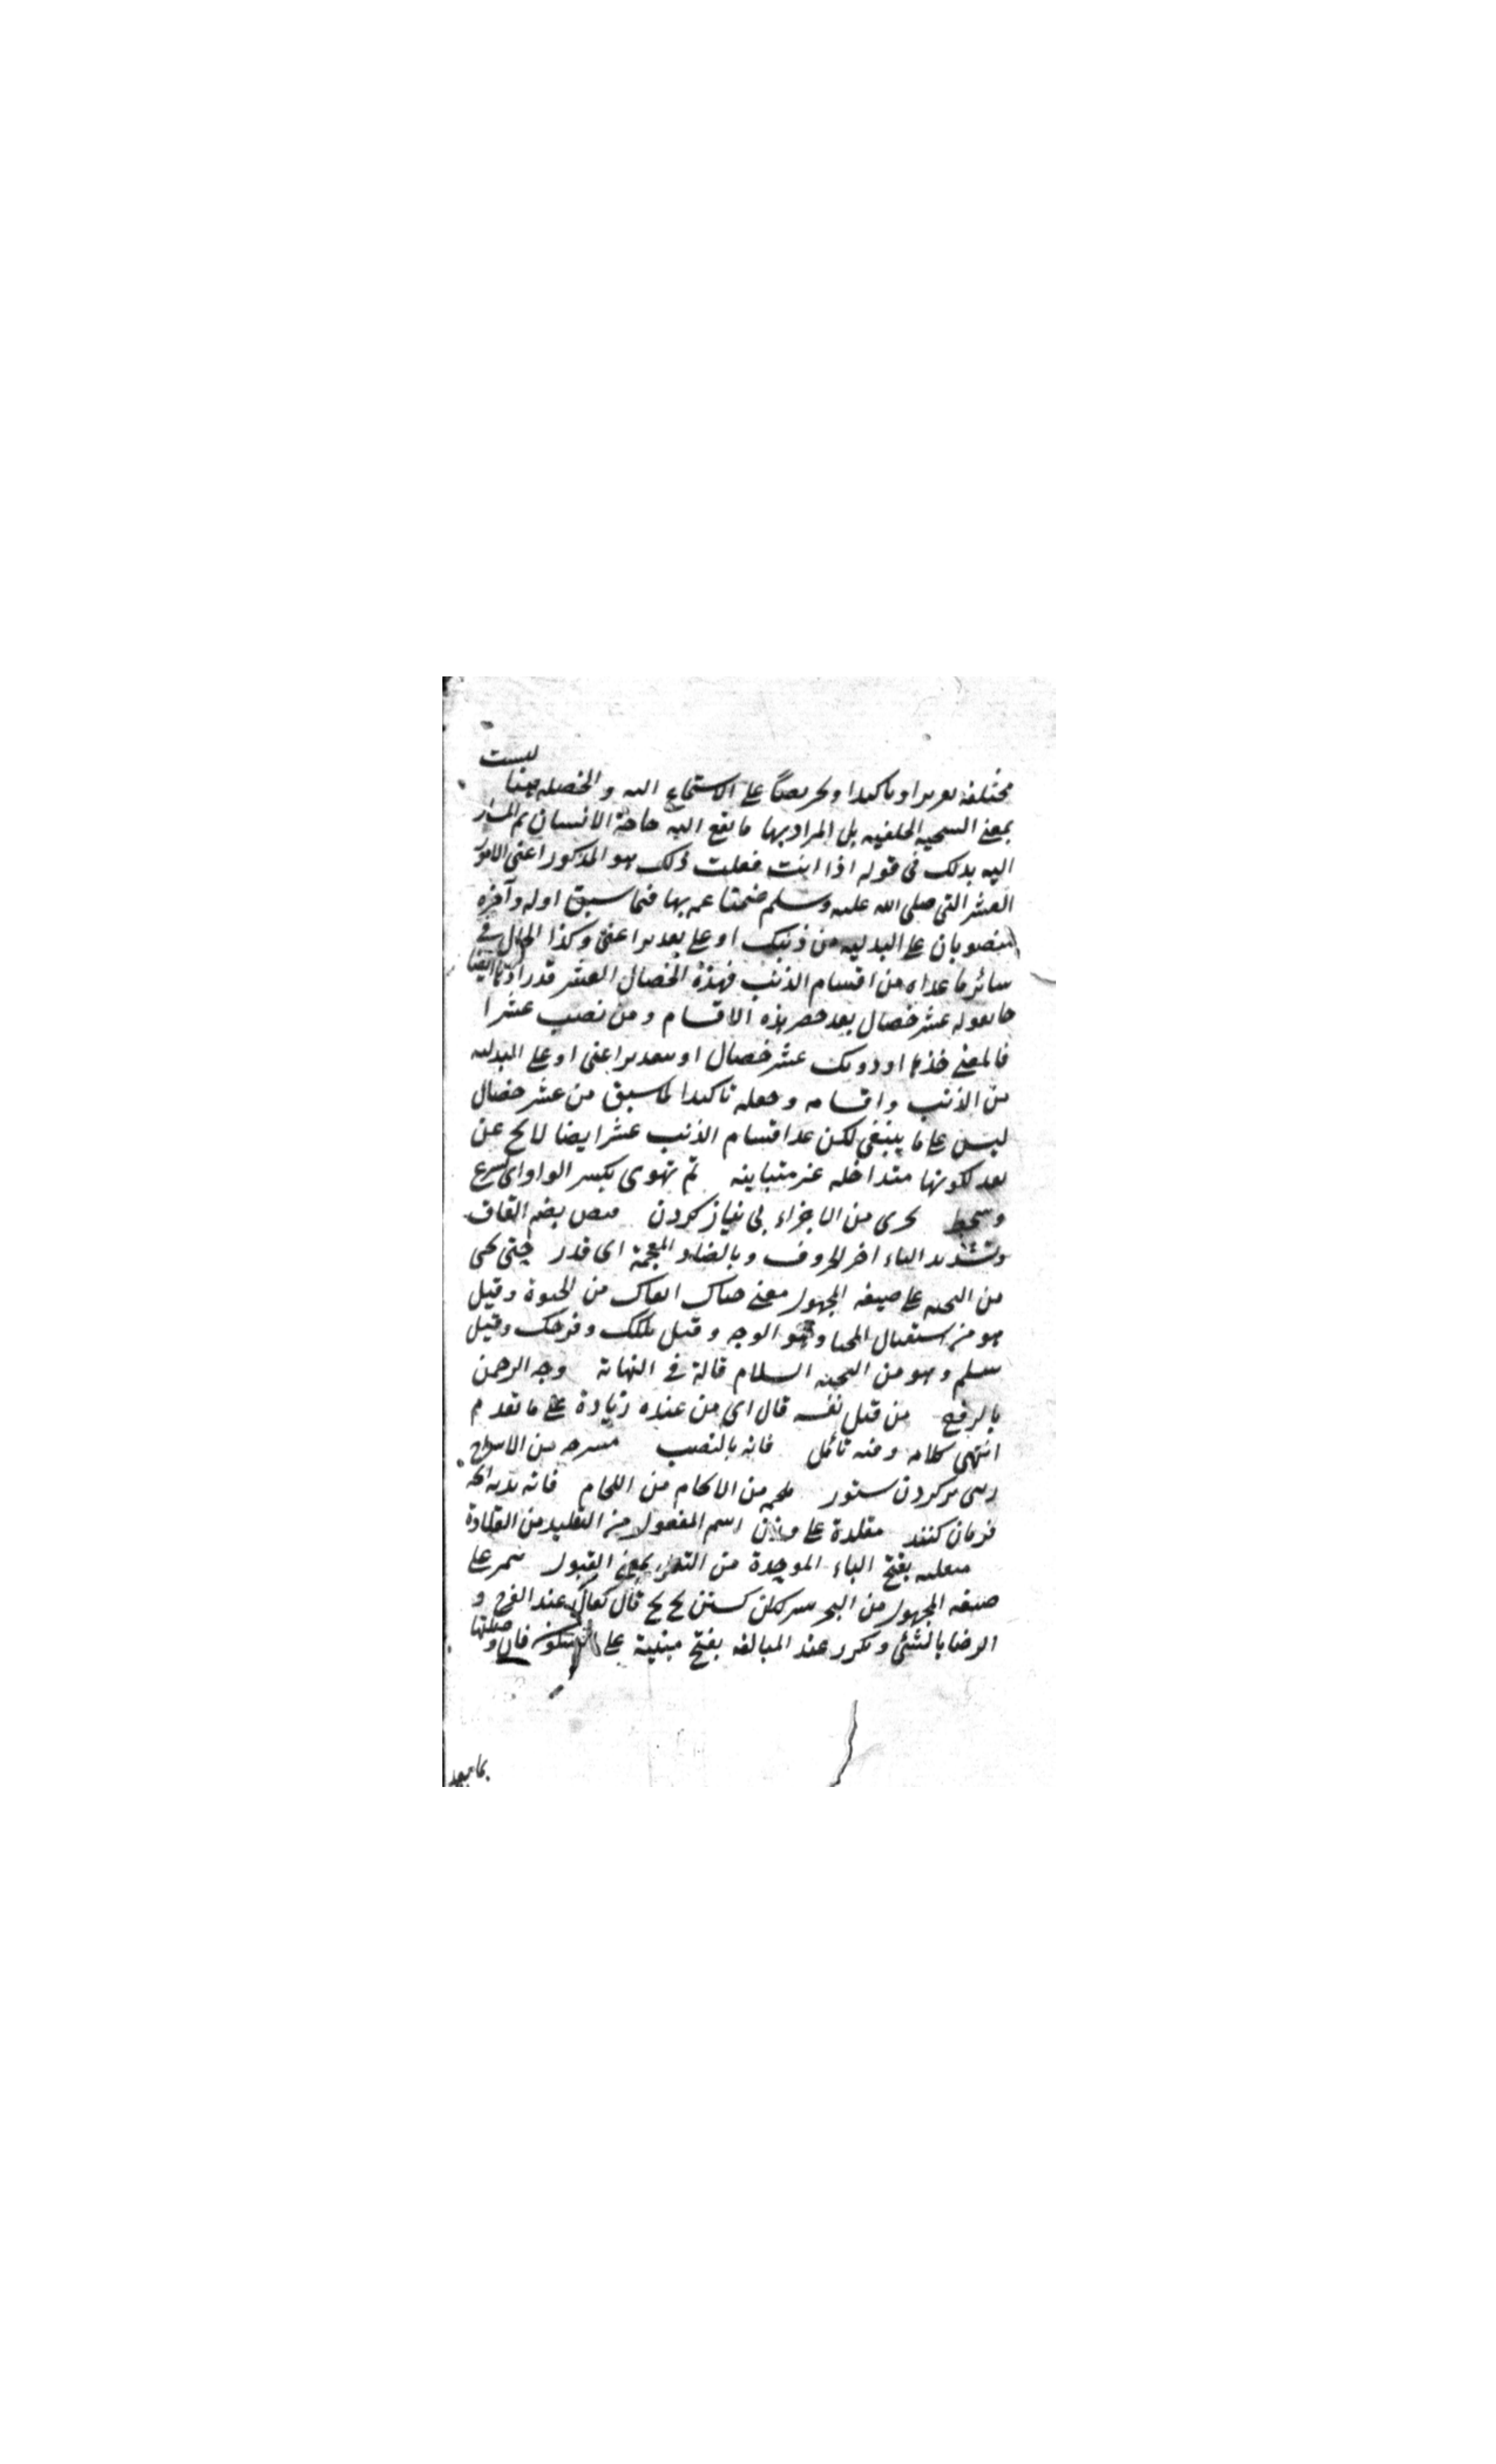 مختلفه تعريرا وتاكيدا وتحريصاً على الاستماع اليه والخصله ههنا ليست
بمعنى السجيه الخلقيه بل المراد بها ما تقع اليه حاجة الانسان ثم المشار
اليه بذلك فى قوله اذا انت فعلت ذلك هو المذكور اعنى الامور
العشر التى صلى الله عليه وسلم فيما سبق اوله وآخره
منصوبان على البدليه من ذنبك او على تقدير اعنى وكذا الحال فى
سائر ما عداه من اقسام الذنب فهذه الخصال العشر قدر ايضا
بقوله عشر خصال بعد حصر هذه الاقسام ومن نصب عشرا
فالمعنى خذها او دونك عشر خصال او بتقدير اعنى او على البدليه
من الذنب واقسامه وجعله تاكيدا لما سبق من عشر خصال
ليس على ما ينبغى لكن عد اقسام الذنب عشرا ايضا لا يخ عن
بعد لكونها متداخله غير متباينه ثم تهوى بكسر الواو اى تسرع
وتنحط تجزى من الاجزاء بى نياز كردن قيض بضم القاف
وتشديد الياء اخر الحروف وبالضاد المعجمة اى قدر حتى تحيى
من التحيه على صيغه المجهول معنى حياك ابقاك من الحيوة وقيل
هو من استقبال المحيا وهو الوجه وقيل ملكك وفرحك وقيل
سلم وهو من التحيه السلام قاله فى النهاية وجه الرحمن
بالرفع من قبل نفسه قال اى من عنده زيادة على ما تقدم
انتهى كلامه وفيه تأمل فانه بالنصب مسرجه من الاسراج
زين بر كردن ستور ملجمه من الالجام من اللجام
فرمان كنند مقلدة على وزن اسم المفعول من التقليد من القلادة
متقبله بفتح الباء الموحدة من التقبل بمعنى القبول على
صيغه المجهول من البحر بخ بخ قال يقال عند الفرح و
الرضا بالشئ وتكرر عند المبالغه بفتح مبنية على السكون فان وصلتها
بما بعد